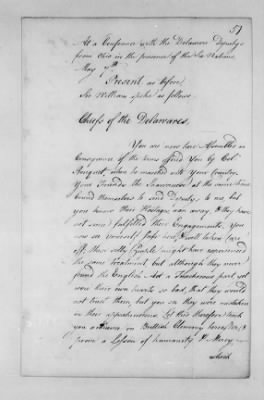 51
At a Conference with the Delaware Deputys
from Ohio in the presence of the Six Nations
May 7th
Present as before
Sir William spoke as follows
Chiefs of the Delawares.
You are now here Assembled in
Consequence of the terms offered You by Col
Bouquet, when he marched into Your Country.
Your Friends the Shawanese at the same time
bound themselves to send Deputys to me but
you know their Hostages run away, & they have
not since fulfilled their Engagements. You
see yourselves safe here, & well taken care
off, their silly People might have experienced
the same treatment, but although they never
found the English Act a Treacherous part, yet
were their own hearts so bad, that they would
not trust them, but you see they were mistaken
in their apprehensions. Let this therefore teach
you a on British Clemency &
prove a Lesson of humanity & Mercy